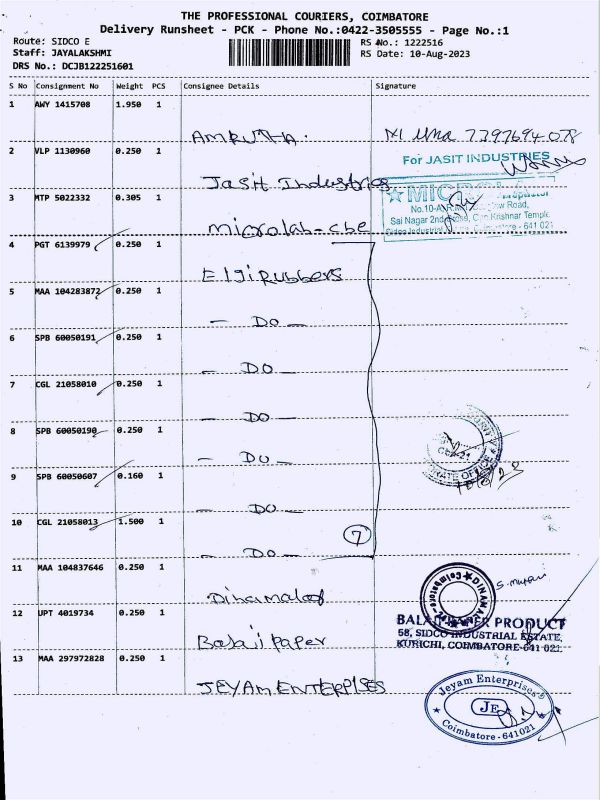 THE PROFESSIONAL COURIERS, COIMBATORE
Delivery Runsheet - PCK - Phone No.:0422-3505555 - Page No.:1
Route: SIDCO E
RS No.: 1222516
Staff: JAYALAKSHMI
RS Date: 10-Aug-2023
DRS No.: DCJB122251601
S No Consignment No Weight PCS Consignee Details Signature
1 AWY 1415708 1.950 1
AMRUTHA. 7397694078
2 VLP 1130960 0.250 1
For JASIT INDUSTRIES
Jasit Industries
3 MTP 5022332 0.305 1
MICRO
Road,
Sai Nagar 2nd Krishnar Temple
641 021
microlab-cbe
4 PGT 6139979 0.250 1
Elgi Rubbers
5 MAA 104283872 0.250 1
- DO -
6 SPB 60050191 0.250 1
- DO -
7 CGL 21058010 0.250 1
- DO -
8 SPB 60050190 0.250 1
- DO -
9 SPB 60050607 0.160 1
- DO -
10 CGL 21058013 1.500 1
7
- DO -
11 MAA 104837646 0.250 1
Dinamalar
12 UPT 4019734 0.250 1
BALAJI PAPER PRODUCT
58, SIDCO INDUSTRIAL ESTATE,
KURICHI, COIMBATORE-641 021.
Balaji Paper
13 MAA 297972828 0.250 1
JEYAM ENTERPRISES
Jeyam Enterprises
JE
Coimbatore - 641021